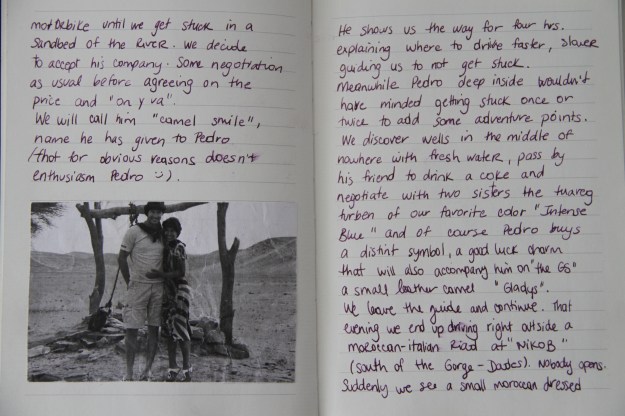 motorbike until we get stuck in a
sandbed of the River. We decide
to accept his company. Some negotiation
as usual before agreeing on the
price and "on y va".
We will call him "camel smile",
name he has given to Pedro
(that for obvious reasons doesn't
enthusiasm Pedro :)).
He shows us the way for four hrs.
explaining where to drive faster, slower
guiding us to not get stuck.
Meanwhile Pedro deep inside wouldn't
have minded getting stuck once or
twice to add some adventure points.
We discover wells in the middle of
nowhere with fresh water, pass by
his friend to drink a coke and
negotiate with two sisters the tuareg
turben of our favorite color "Intense
Blue" and of course Pedro buys
a distint symbol, a good luck charm
that will also accompany him on "the GS"
a small leather camel "Gladys".
We leave the guide and continue. That
evening we end up driving right outside a
moroccan-italian Riad at "NIKOB"
(south of the Gorge-Dades). Nobody opens.
Suddenly we see a small moroccan dressed